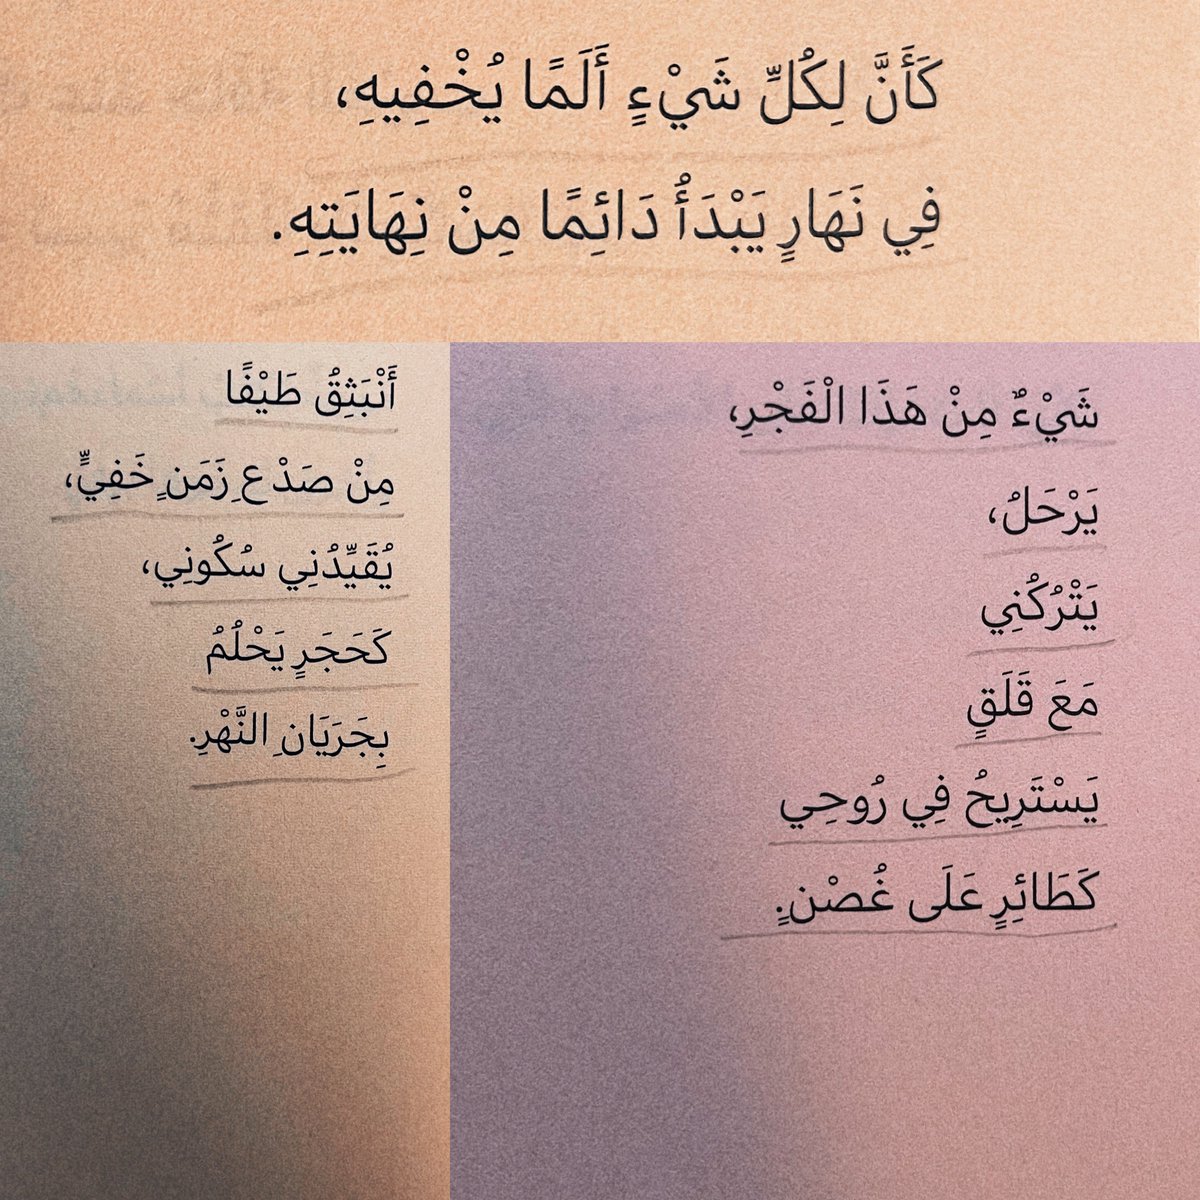 كَأَنَّ لِكُلِّ شَيْءٍ أَلَمًا يُخْفِيهِ،
فِي نَهَارٍ يَبْدَأُ دَائِمًا مِنْ نِهَايَتِهِ.
شَيْءٌ مِنْ هَذَا الْفَجْرِ،
يَرْحَلُ،
يَتْرُكُنِي
مَعَ قَلَقٍ
يَسْتَرِيحُ فِي رُوحِي
كَطَائِرٍ عَلَى غُصْنٍ.
أَنْبَثِقُ طَيْفًا
مِنْ صَدْعِ زَمَنٍ خَفِيٍّ،
يُقَيِّدُنِي سُكُونِي،
كَحَجَرٍ يَحْلُمُ
بِجَرَيَانِ النَّهْرِ.